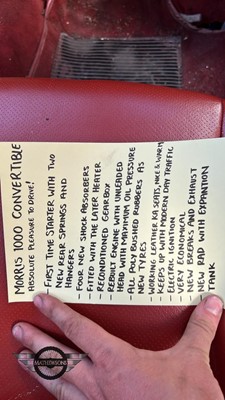 MORRIS 1000 CONVERTIBLE
ABSOLUTE PLEASURE TO DRIVE!
- FIRST TIME STARTER WITH TWO
NEW REAR SPRINGS AND
HANGERS
- FOUR NEW SHOCK ABSORBERS
- FITTED WITH THE LATER HEATER
- RECONDITIONED GEARBOX
- REBUILT ENGINE WITH UNLEADED
HEAD WITH MAXIMUM OIL PRESSURE
- ALL POLY BUSHED RUBBERS AS
NEW TYRES
- WORKING LEATHER KA SEATS, NICE & WARM
- KEEPS UP WITH MODERN DAY TRAFFIC
- ELECTRIC IGNITION
- VERY ECONOMICAL
- NEW BREAKS AND EXHAUST
- NEW RAD WITH EXPANTION
TANK
MATHEWSONS